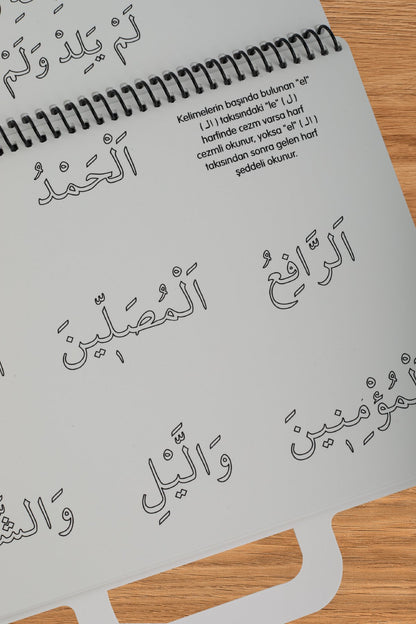 لَمْ يَلِدْ وَلَمْ
Kelimelerin başında bulunan "el"
( اَلْ ) takısındaki "le" ( لْ )
harfinde cezm varsa harf
cezmli okunur, yoksa "el" ( اَلـ )
takısından sonra gelen harf
şeddeli okunur.
اَلْحَمْدُ
اَلرَّافِعُ
اَلْمُصَلِّينَ
لْمُؤْمِنِينَ
وَالَّيْلِ